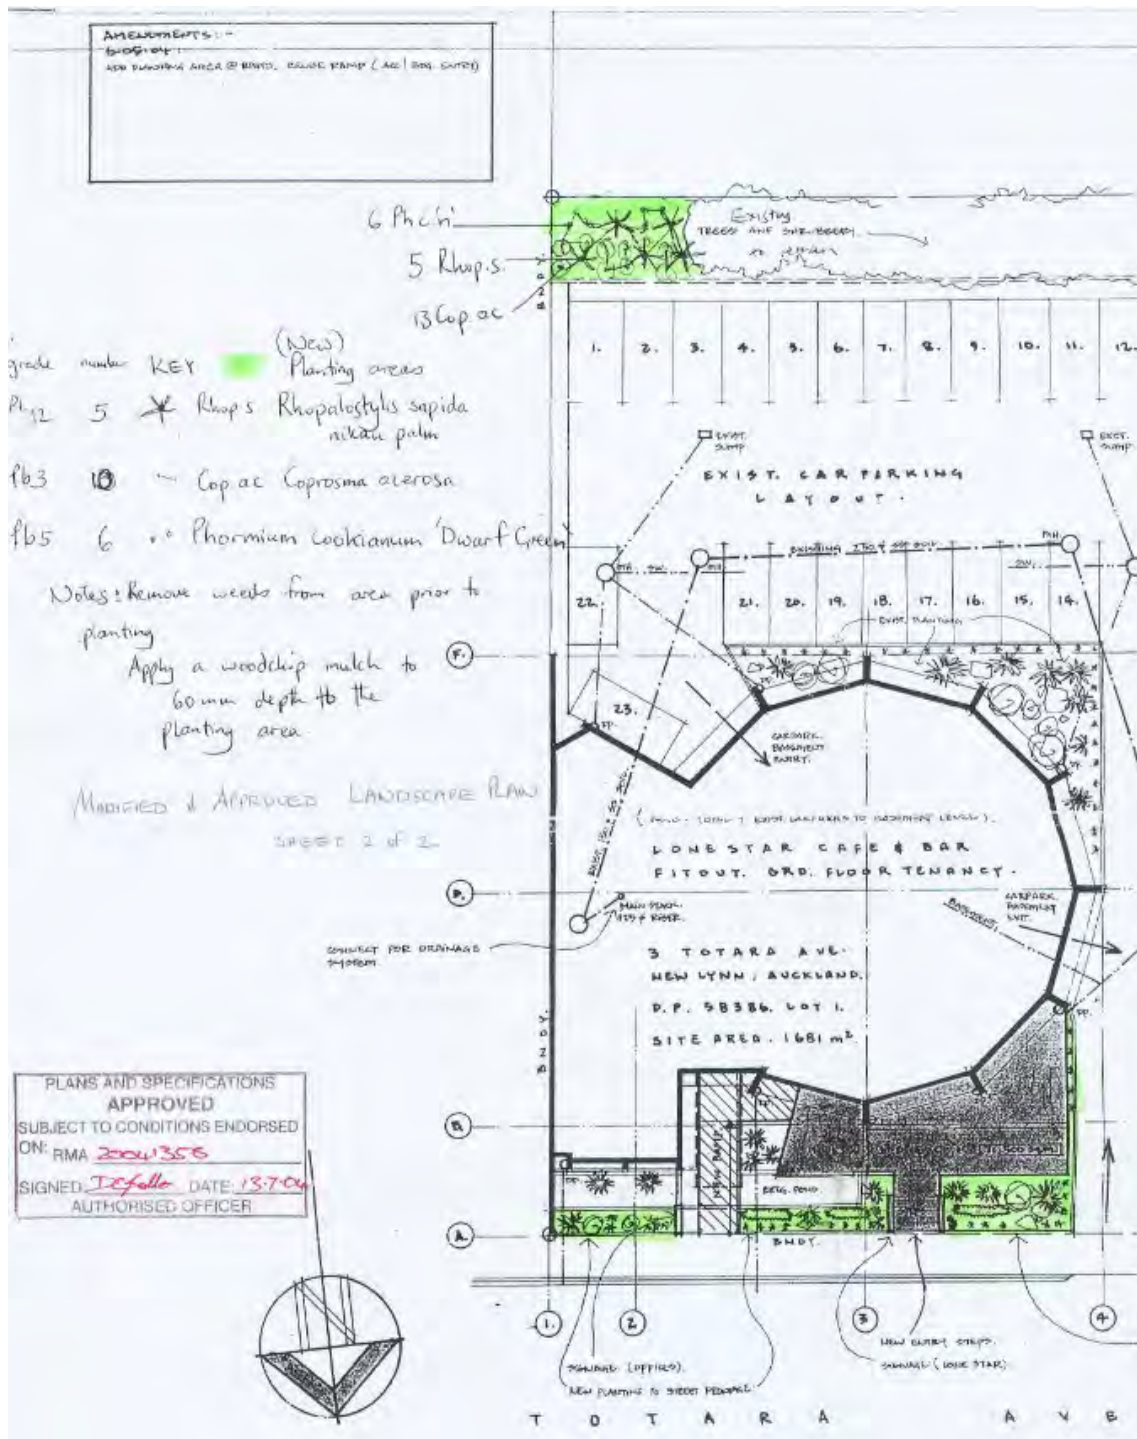 AMENDMENTS : -
6·05·04 :
ADD PLANTING AREA @
6 Ph c 'n'
5 Rhop.s.
13 Cop. ac
Existing
TREES AND SHRUBBERY
to remain
1. 2. 3. 4. 5. 6. 7. 8. 9. 10. 11. 12.
(New)
grade number KEY Planting areas
12 5 Rhop s Rhopalostylis sapida
nikau palm
Pb3 10 Cop ac Coprosma acerosa
Pb5 6 Phormium cookianum 'Dwarf Green'
Notes: Remove weeds from area prior to
planting
Apply a woodchip mulch to
60mm depth to the
planting area
MODIFIED & APPROVED LANDSCAPE PLAN
SHEET 2 of 2
EXIST.
SUMP
EXIST.
SUMP
EXIST. CAR PARKING
LAYOUT.
MH
MH SW.
MH
SW.
22. 21. 20. 19. 18. 17. 16. 15. 14.
EXIST. PLANTING
F.
23.
DP.
DP.
DP.
CARPARK
BASEMENT
ENTRY.
LONE STAR CAFE & BAR
FITOUT. GRD. FLOOR TENANCY.
D.
MAIN STACK.
CARPARK
BASEMENT
EXIT.
BASEMENT
CONNECT FOR DRAINAGE
SYSTEM
3 TOTARA AVE.
NEW LYNN, AUCKLAND.
D.P. 58386. LOT 1.
SITE AREA. 1681 m²
BNDY.
DP.
PLANS AND SPECIFICATIONS
APPROVED
SUBJECT TO CONDITIONS ENDORSED
ON: RMA 20041356
SIGNED DATE 13-7-04
AUTHORISED OFFICER
B.
NEW RAMP
DP.
A.
BNDY.
1. 2 3 4
NEW ENTRY STEPS.
SIGNAGE (LONE STAR)
SIGNAGE (OFFICES).
NEW PLANTING TO STREET FRONTAGE
TOTARA AVE